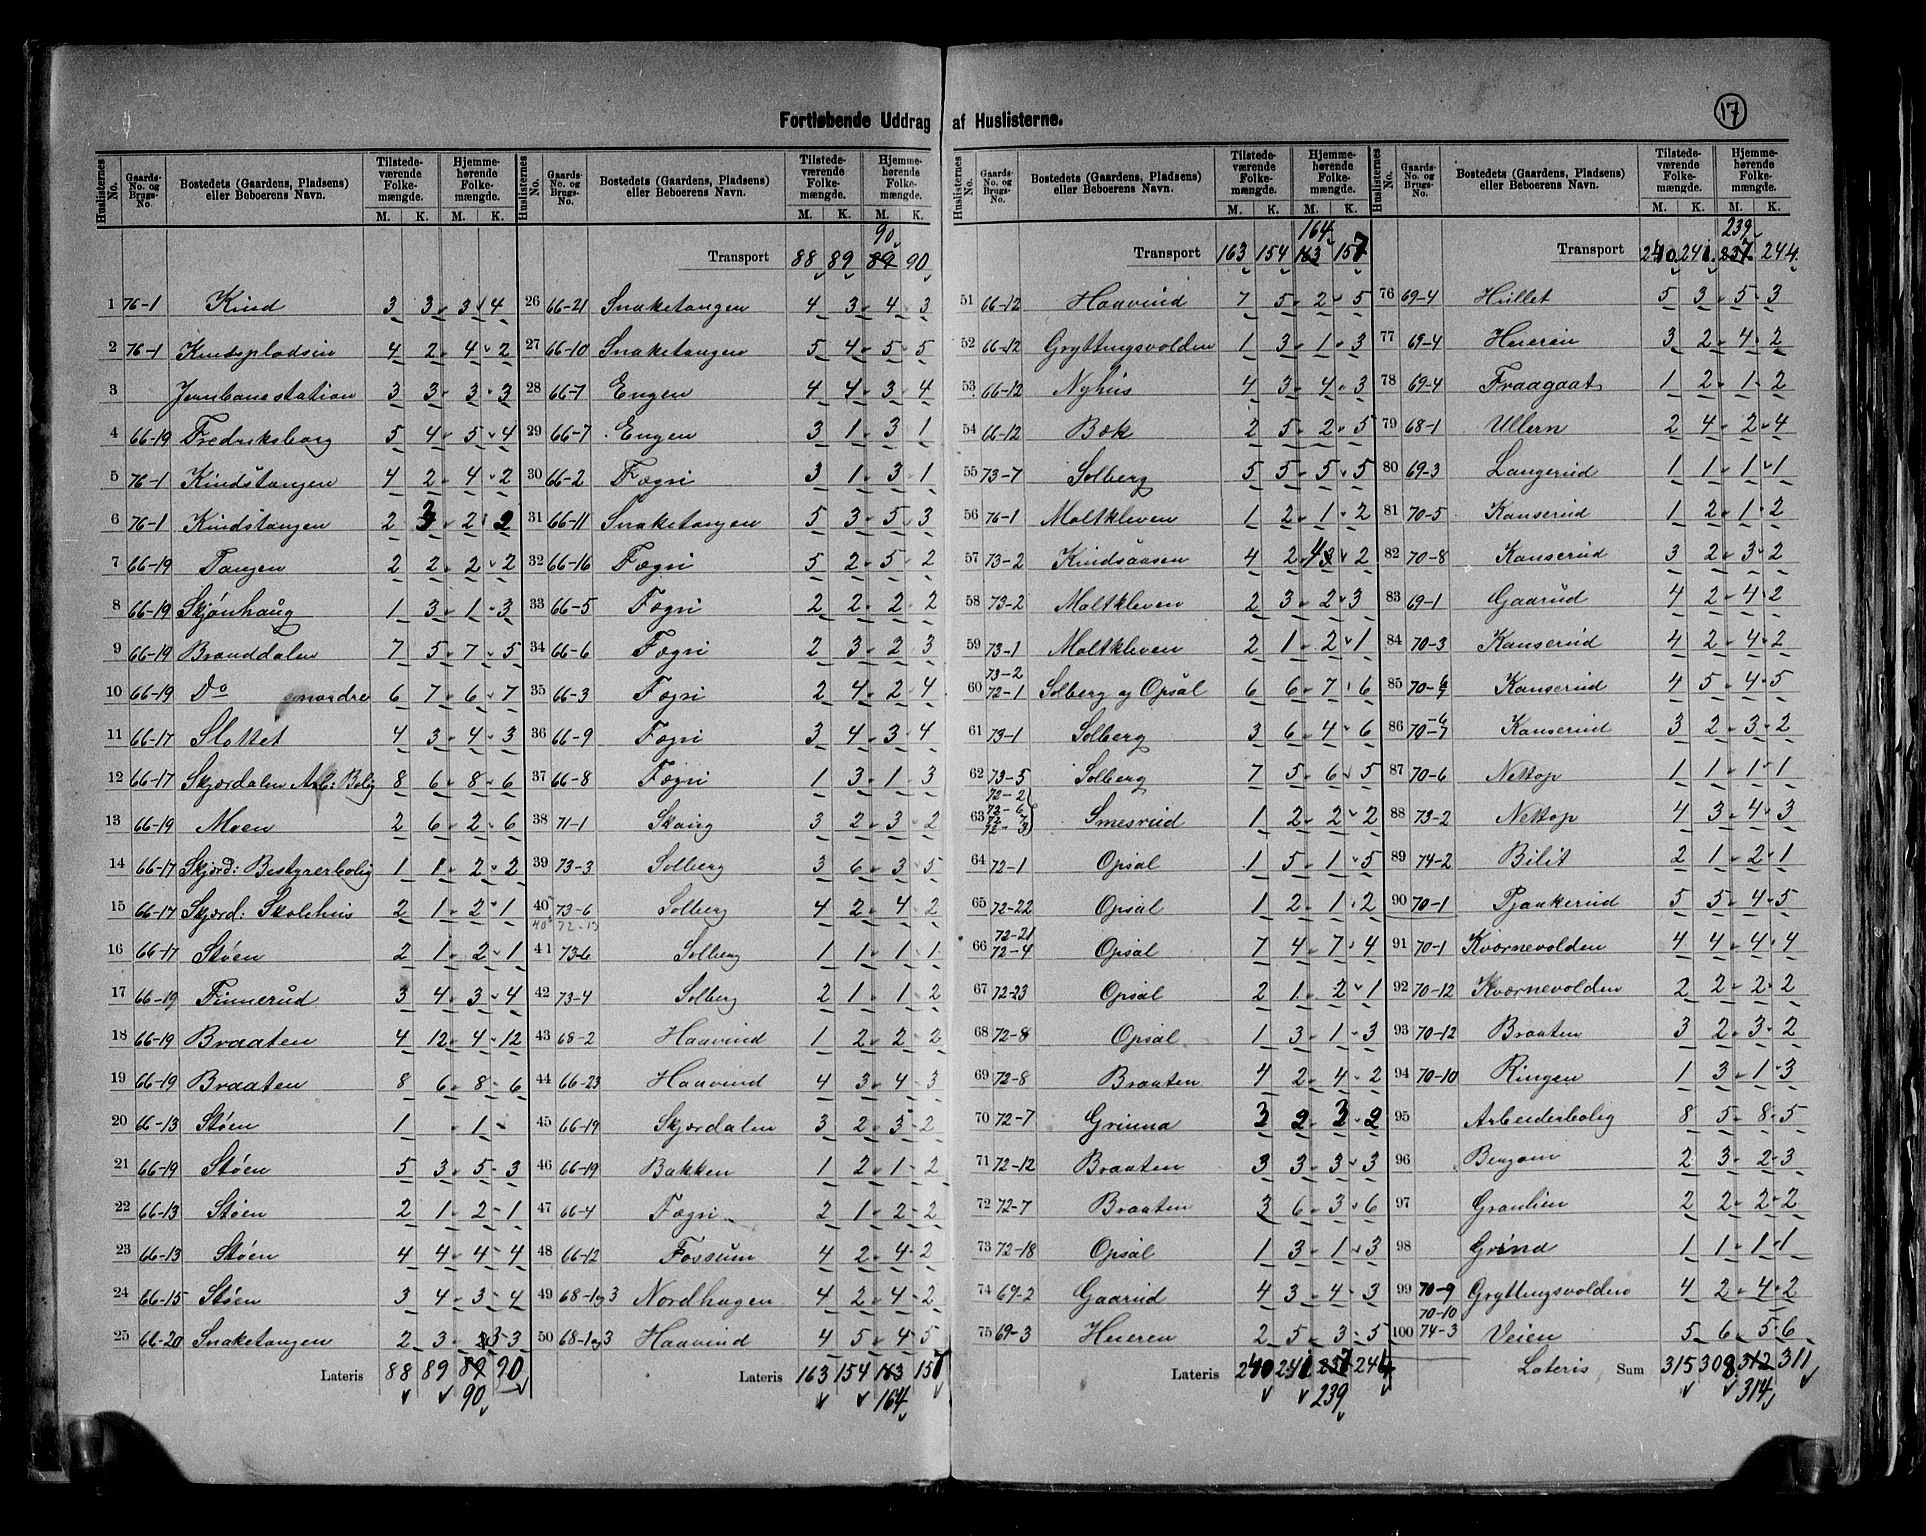 17
Fortløbende Uddrag af Huslisterne.
Huslisternes No. | Gaards-No. og Brugs-No. | Bostedets (Gaardens, Pladsens) eller Beboerens Navn. | Tilstedeværende Folkemængde. M. K. | Hjemmehørende Folkemængde. M. K.
1 76-1 Kind 3 3 3 4
2 76-1 Kindspladsen 4 2 4 2
3 Jernbanestation 3 3 3 3
4 66-19 Fredriksborg 5 4 5 4
5 76-1 Kindstangen 4 2 4 2
6 76-1 Kindstangen 2 2 2 2
7 66-19 Tangen 2 2 2 2
8 66-19 Skjønhaug 1 3 1 3
9 66-19 Branddalen 7 5 7 5
10 66-19 Do nordre 6 7 6 7
11 66-17 Slottet 4 3 4 3
12 66-17 Skjærdalen Arb: Bolig 8 6 8 6
13 66-19 Moen 2 6 2 6
14 66-17 Skjærd: Bestyrerbolig 1 1 2 2
15 66-17 Skjærd: Skolehus 2 1 2 1
16 66-17 Støen 2 1 2 1
17 66-19 Finnerud 3 4 3 4
18 66-19 Braaten 4 12 4 12
19 66-19 Braaten 8 6 8 6
20 66-13 Støen 1 1
21 66-19 Støen 5 3 5 3
22 66-13 Støen 2 1 2 1
23 66-13 Støen 4 4 4 4
24 66-15 Støen 3 4 3 4
25 66-20 Snaketangen 2 3 3 3
Lateris 88 89 89 90
90
Huslisternes No. | Gaards-No. og Brugs-No. | Bostedets (Gaardens, Pladsens) eller Beboerens Navn. | Tilstedeværende Folkemængde. M. K. | Hjemmehørende Folkemængde. M. K.
90
Transport 88 89 89 90
26 66-21 Snaketangen 4 3 4 3
27 66-10 Snaketangen 5 4 5 5
28 66-7 Engen 4 4 3 4
29 66-7 Engen 3 1 3 1
30 66-2 Fægri 3 1 3 1
31 66-11 Snaketangen 5 3 5 3
32 66-16 Fægri 5 2 5 2
33 66-5 Fægri 2 2 2 2
34 66-6 Fægri 2 3 2 3
35 66-3 Fægri 2 4 2 4
36 66-9 Fægri 3 4 3 4
37 66-8 Fægri 1 3 1 3
38 71-1 Skaug 3 2 3 2
39 73-3 Solberg 3 6 3 5
40 73-6 Solberg 4 2 4 2
40 72-13
41 73-6 Solberg 1 1 1 1
42 73-4 Solberg 2 1 1 2
43 68-2 Haavind 1 2 2 2
44 66-23 Haavind 4 3 4 3
45 66-19 Skjærdalen 3 2 3 2
46 66-19 Bakken 1 2 1 2
47 66-4 Fægri 2 1 2 2
48 66-12 Fossum 4 2 4 2
49 68-1og3 Nordhagen 4 2 4 2
50 68-1og3 Haavind 4 5 4 5
Lateris 163 154 163 157
164
Huslisternes No. | Gaards-No. og Brugs-No. | Bostedets (Gaardens, Pladsens) eller Beboerens Navn. | Tilstedeværende Folkemængde. M. K. | Hjemmehørende Folkemængde. M. K.
164
Transport 163 154 163 157
51 66-12 Haavind 7 5 2 5
52 66-12 Gryttingsvolden 1 3 1 3
53 66-12 Nyhus 4 3 4 3
54 66-12 Bæk 2 5 2 5
55 73-7 Solberg 5 5 5 5
56 76-1 Moltkleven 1 2 1 2
57 73-2 Kindsaasen 4 2 4 2
58 73-2 Moltkleven 2 3 2 3
59 73-1 Moltkleven 2 1 2 1
73-2
60 72-1 Solberg og Opsal 6 6 7 6
61 73-1 Solberg 3 6 4 6
62 73-5 Solberg 7 5 6 5
72-2
72-6
63 72-7 Smesrud 1 2 2 2
72-3
64 72-1 Opsal 1 5 1 5
65 72-22 Opsal 1 2 1 2
72-21
66 72-4 Opsal 7 4 7 4
67 72-23 Opsal 2 1 2 1
68 72-8 Opsal 1 3 1 3
69 72-8 Braaten 4 2 4 2
70 72-7 Grinna 3 2 3 2
71 72-12 Braaten 3 3 3 3
72 72-7 Braaten 3 6 3 6
73 72-18 Opsal 1 3 1 3
74 69-2 Gaarud 4 3 4 3
75 69-3 Hueren 2 5 3 5
Lateris 240 241 237 244
239
Huslisternes No. | Gaards-No. og Brugs-No. | Bostedets (Gaardens, Pladsens) eller Beboerens Navn. | Tilstedeværende Folkemængde. M. K. | Hjemmehørende Folkemængde. M. K.
239
Transport 240 241 237 244
76 69-4 Hullet 5 3 5 3
77 69-4 Hueren 3 2 4 2
78 69-4 Fraagaat 1 2 1 2
79 68-1 Ullern 2 4 2 4
80 69-3 Langerud 1 1 1 1
81 70-5 Kanserud 1 2 1 2
82 70-8 Kanserud 3 2 3 2
83 69-1 Gaarud 4 2 4 2
84 70-3 Kanserud 4 2 4 2
85 70-6/7 Kanserud 4 5 4 5
86 70-6/7 Kanserud 3 2 3 2
87 70-6 Nettop 1 1 1 1
88 73-2 Nettop 4 3 4 3
89 74-2 Bilit 2 1 2 1
90 70-1 Pjaakerud 5 5 4 5
91 70-1 Kværnevolden 4 4 4 4
92 70-12 Kværnevolden 2 2 2 2
93 70-12 Braaten 3 2 3 2
94 70-10 Ringen 1 3 1 3
95 Arbeiderbolig 8 5 8 5
96 2 3 2 3
97 Granlien 2 2 2 2
98 Grind 1 1 1 1
99 70-9 Gryttingsvolden 4 2 4 2
70-10
100 74-3 Veien 5 6 5 6
Lateris Sum 315 308 312 311
314